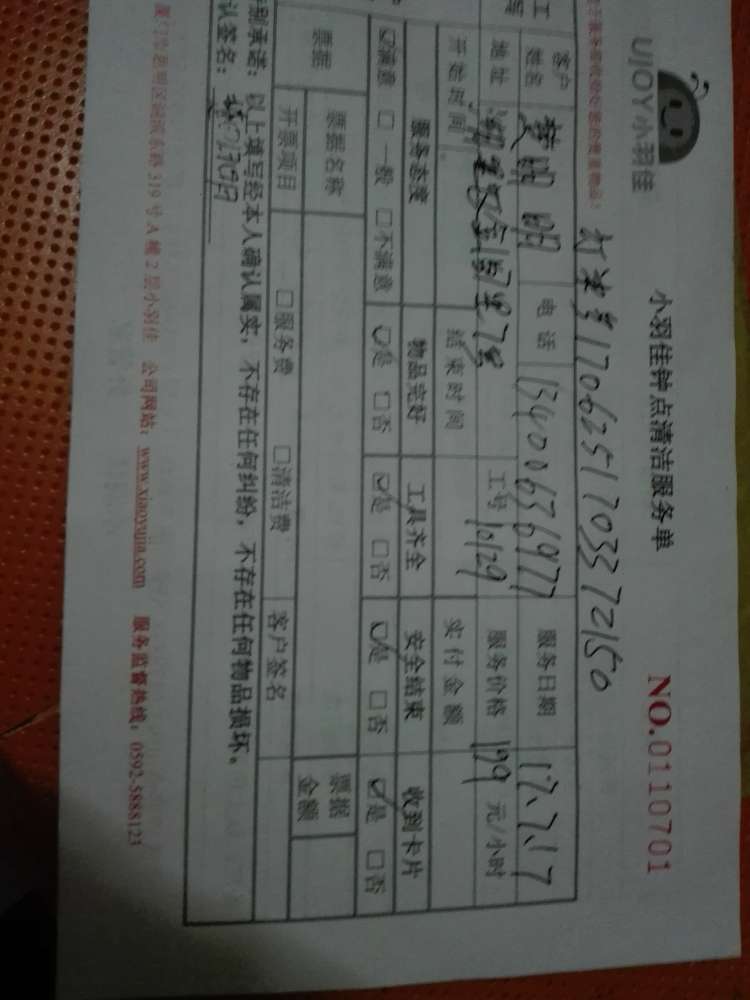 UJOY小羽佳
小羽佳钟点清洁服务单
NO.0110701
17063517033572150
客户姓名 电话 13400636977 服务日期 17.7.17
地址 工号 10129 服务价格 199 元/小时
开始时间 结束时间 实付金额
服务态度 物品完好 工具齐全 安全结束 收到卡片
☑满意 □一般 □不满意 ☑是 □否 ☑是 □否 ☑是 □否 ☑是 □否
票据 票据名称 票据金额
开票项目 □服务费 □清洁费 客户签名
承诺：以上填写经本人确认属实，不存在任何纠纷，不存在任何物品损坏。
认签名：
319 号 A 幢 2 层小羽佳 公司网站：www.xiaoyujia.com 服务监督热线：0592-5888123